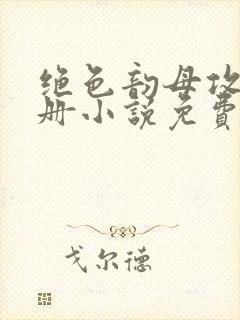 绝色韵母攻
册小说免费
戈尔德